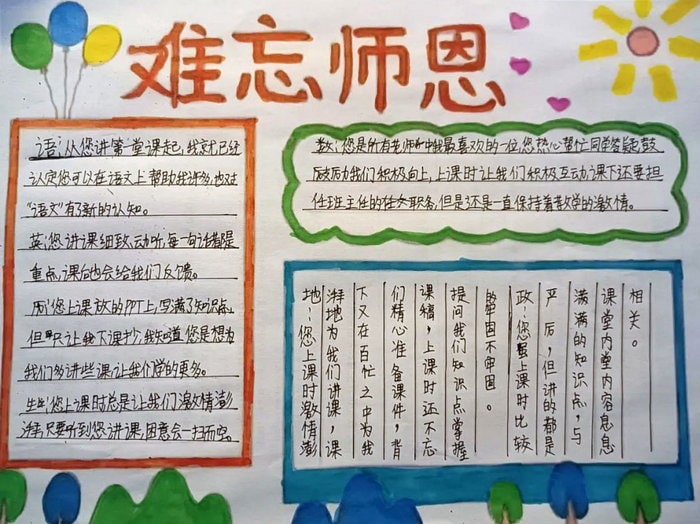 难忘师恩
语：从您讲第一堂课起，我就已经
认定您可以在语文上帮助我许多，也对
“语文”有了新的认知。
英：您讲课细致，动听，每一句话都是
重点，课后也会给我们反馈。
历：您上课放的PPT上，写满了知识点，
但只让我下课抄，我知道您是想为
我们多讲些课让我们学的更多。
生：您上课时总是让我们激情澎
湃，只要听到您讲课，困意会一扫而空。
数：您是所有老师中我最喜欢的一位，您热心帮忙同学答疑，鼓
励我们积极向上，上课时让我们积极互动，课下还要担
任班主任的任务职务，但是还是一直保持着教学的激情。
地：您上课时激情澎
湃地为我们讲课，课
下又在百忙之中为我
们精心准备课件，背
课稿，上课时还不忘
提问我们知识点掌握
的牢固不牢固。
政：您虽上课时比较
严厉，但讲的都是
满满的知识点，与
课堂内堂内容息息
相关。